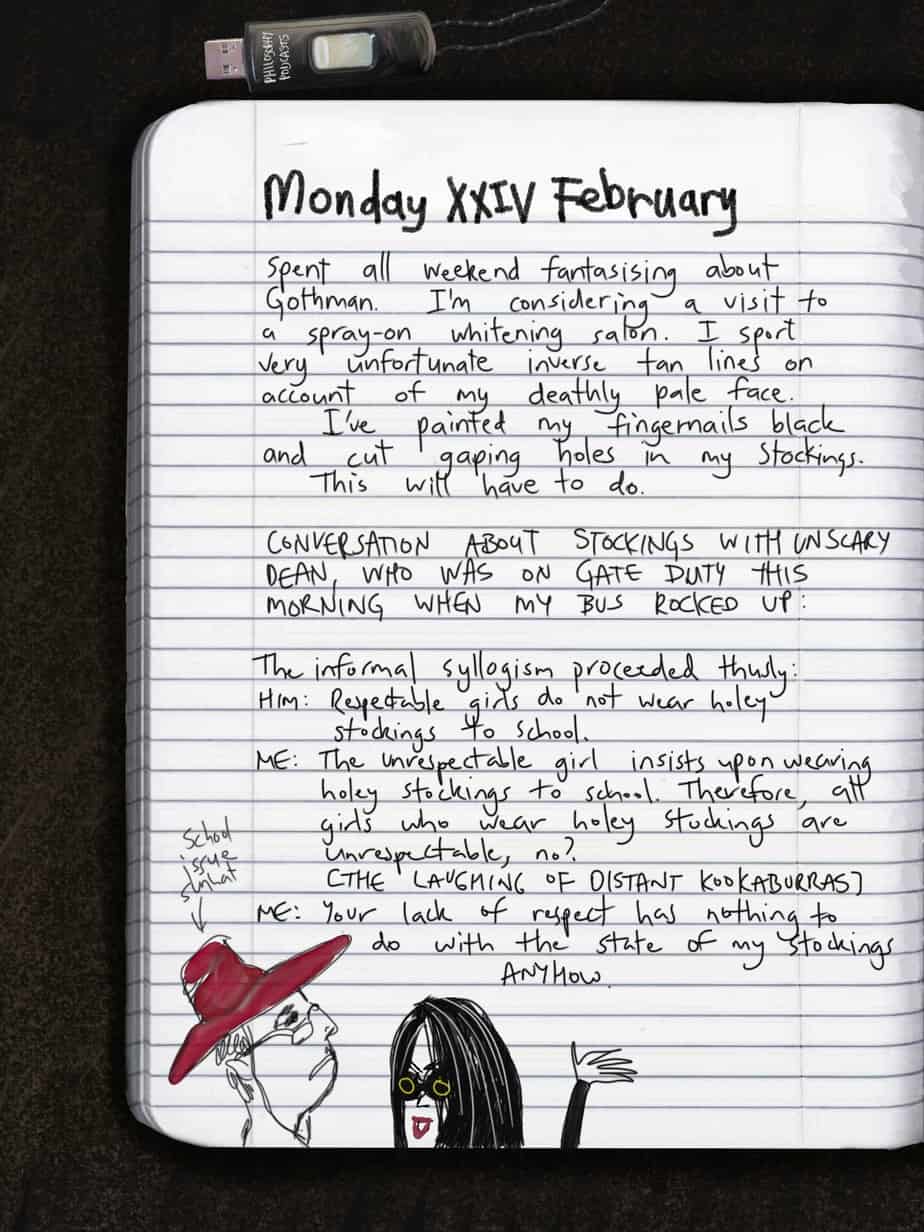 PHILOSOPHY
PODCASTS
Monday XXIV February
Spent all weekend fantasising about
Gothman. I'm considering a visit to
a spray-on whitening salon. I sport
very unfortunate inverse tan lines on
account of my deathly pale face.
I've painted my fingernails black
and cut gaping holes in my stockings.
This will have to do.
CONVERSATION ABOUT STOCKINGS WITH UNSCARY
DEAN, WHO WAS ON GATE DUTY THIS
MORNING WHEN MY BUS ROCKED UP:
The informal syllogism proceeded thusly:
HIM: Respectable girls do not wear holey
stockings to school.
ME: The unrespectable girl insists upon wearing
holey stockings to school. Therefore, all
girls who wear holey stockings are
unrespectable, no?
[THE LAUGHING OF DISTANT KOOKABURRAS]
ME: Your lack of respect has nothing to
do with the state of my stockings
ANYHOW.
School
issue
sunhat